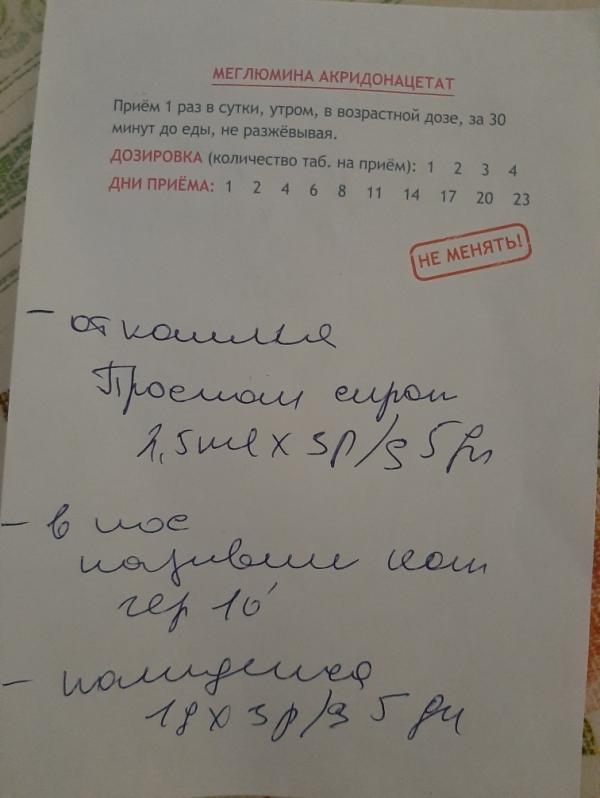 МЕГЛЮМИНА АКРИДОНАЦЕТАТ
Приём 1 раз в сутки, утром, в возрастной дозе, за 30
минут до еды, не разжёвывая.
ДОЗИРОВКА (количество таб. на приём): 1 2 3 4
ДНИ ПРИЁМА: 1 2 4 6 8 11 14 17 20 23
НЕ МЕНЯТЬ!
- от кашля
Проспан сироп
2,5 ml x 3р/д 5 дн
- в нос
називин кап
чер 10'
- полидекса
1д x 3р/д 5 дн